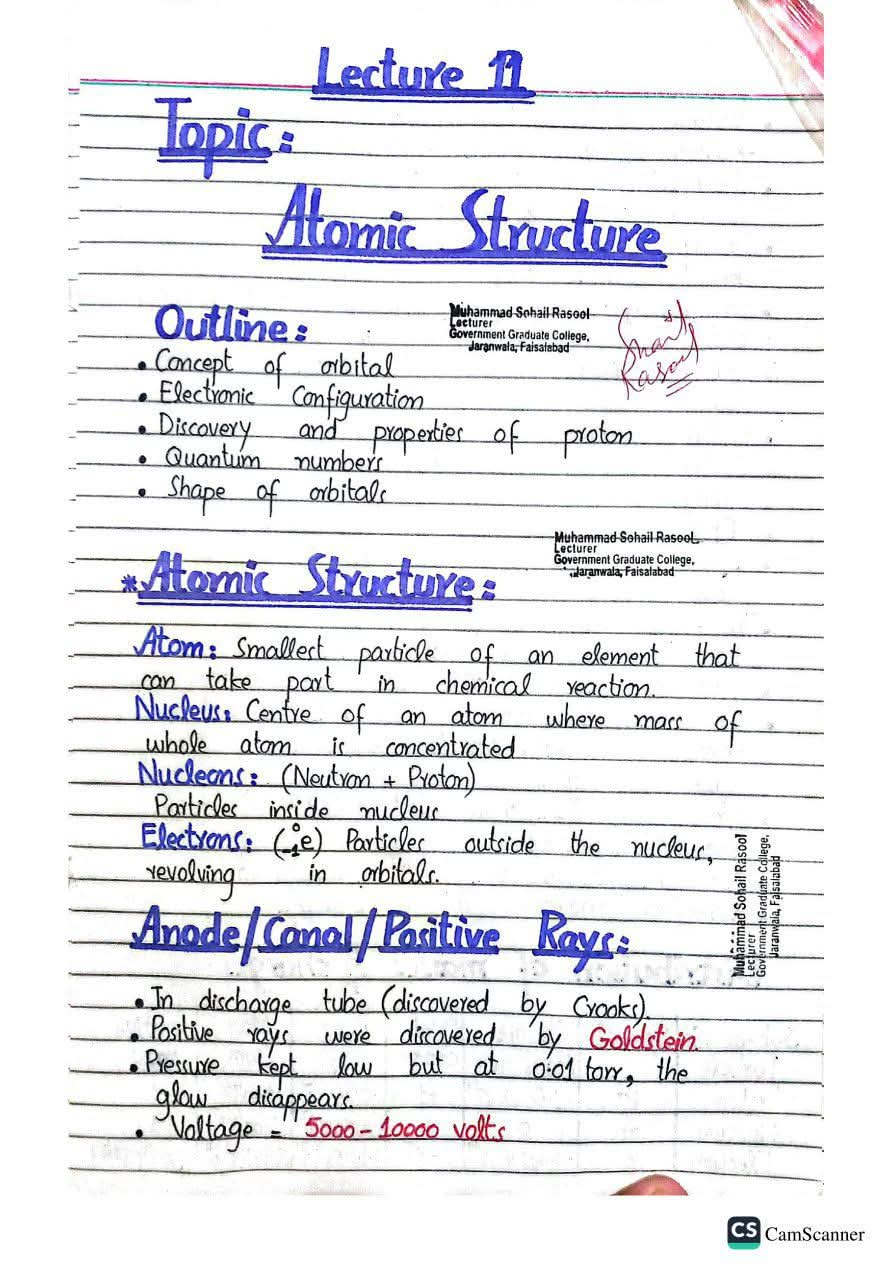 Lecture 11
Topic:
Atomic Structure
Outline:
Muhammad Sohail Rasool
Lecturer
Government Graduate College,
Jaranwala, Faisalabad
• Concept of orbital
• Electronic Configuration
• Discovery and properties of proton
• Quantum numbers
• Shape of orbitals
Muhammad Sohail Rasool
Lecturer
Government Graduate College,
Jaranwala, Faisalabad
*Atomic Structure:
Atom: Smallest particle of an element that
can take part in chemical reaction.
Nucleus: Centre of an atom where mass of
whole atom is concentrated
Nucleons: (Neutron + Proton)
Particles inside nucleus
Electrons: (⁰₋₁e) Particles outside the nucleus,
revolving in orbitals.
Muhammad Sohail Rasool
Lecturer
Government Graduate College,
Jaranwala, Faisalabad
Anode/Canal/Positive Rays:
• In discharge tube (discovered by Crooks).
• Positive rays were discovered by Goldstein.
• Pressure kept low but at 0.01 torr, the
glow disappears.
• Voltage = 5000-10000 volts
CS CamScanner